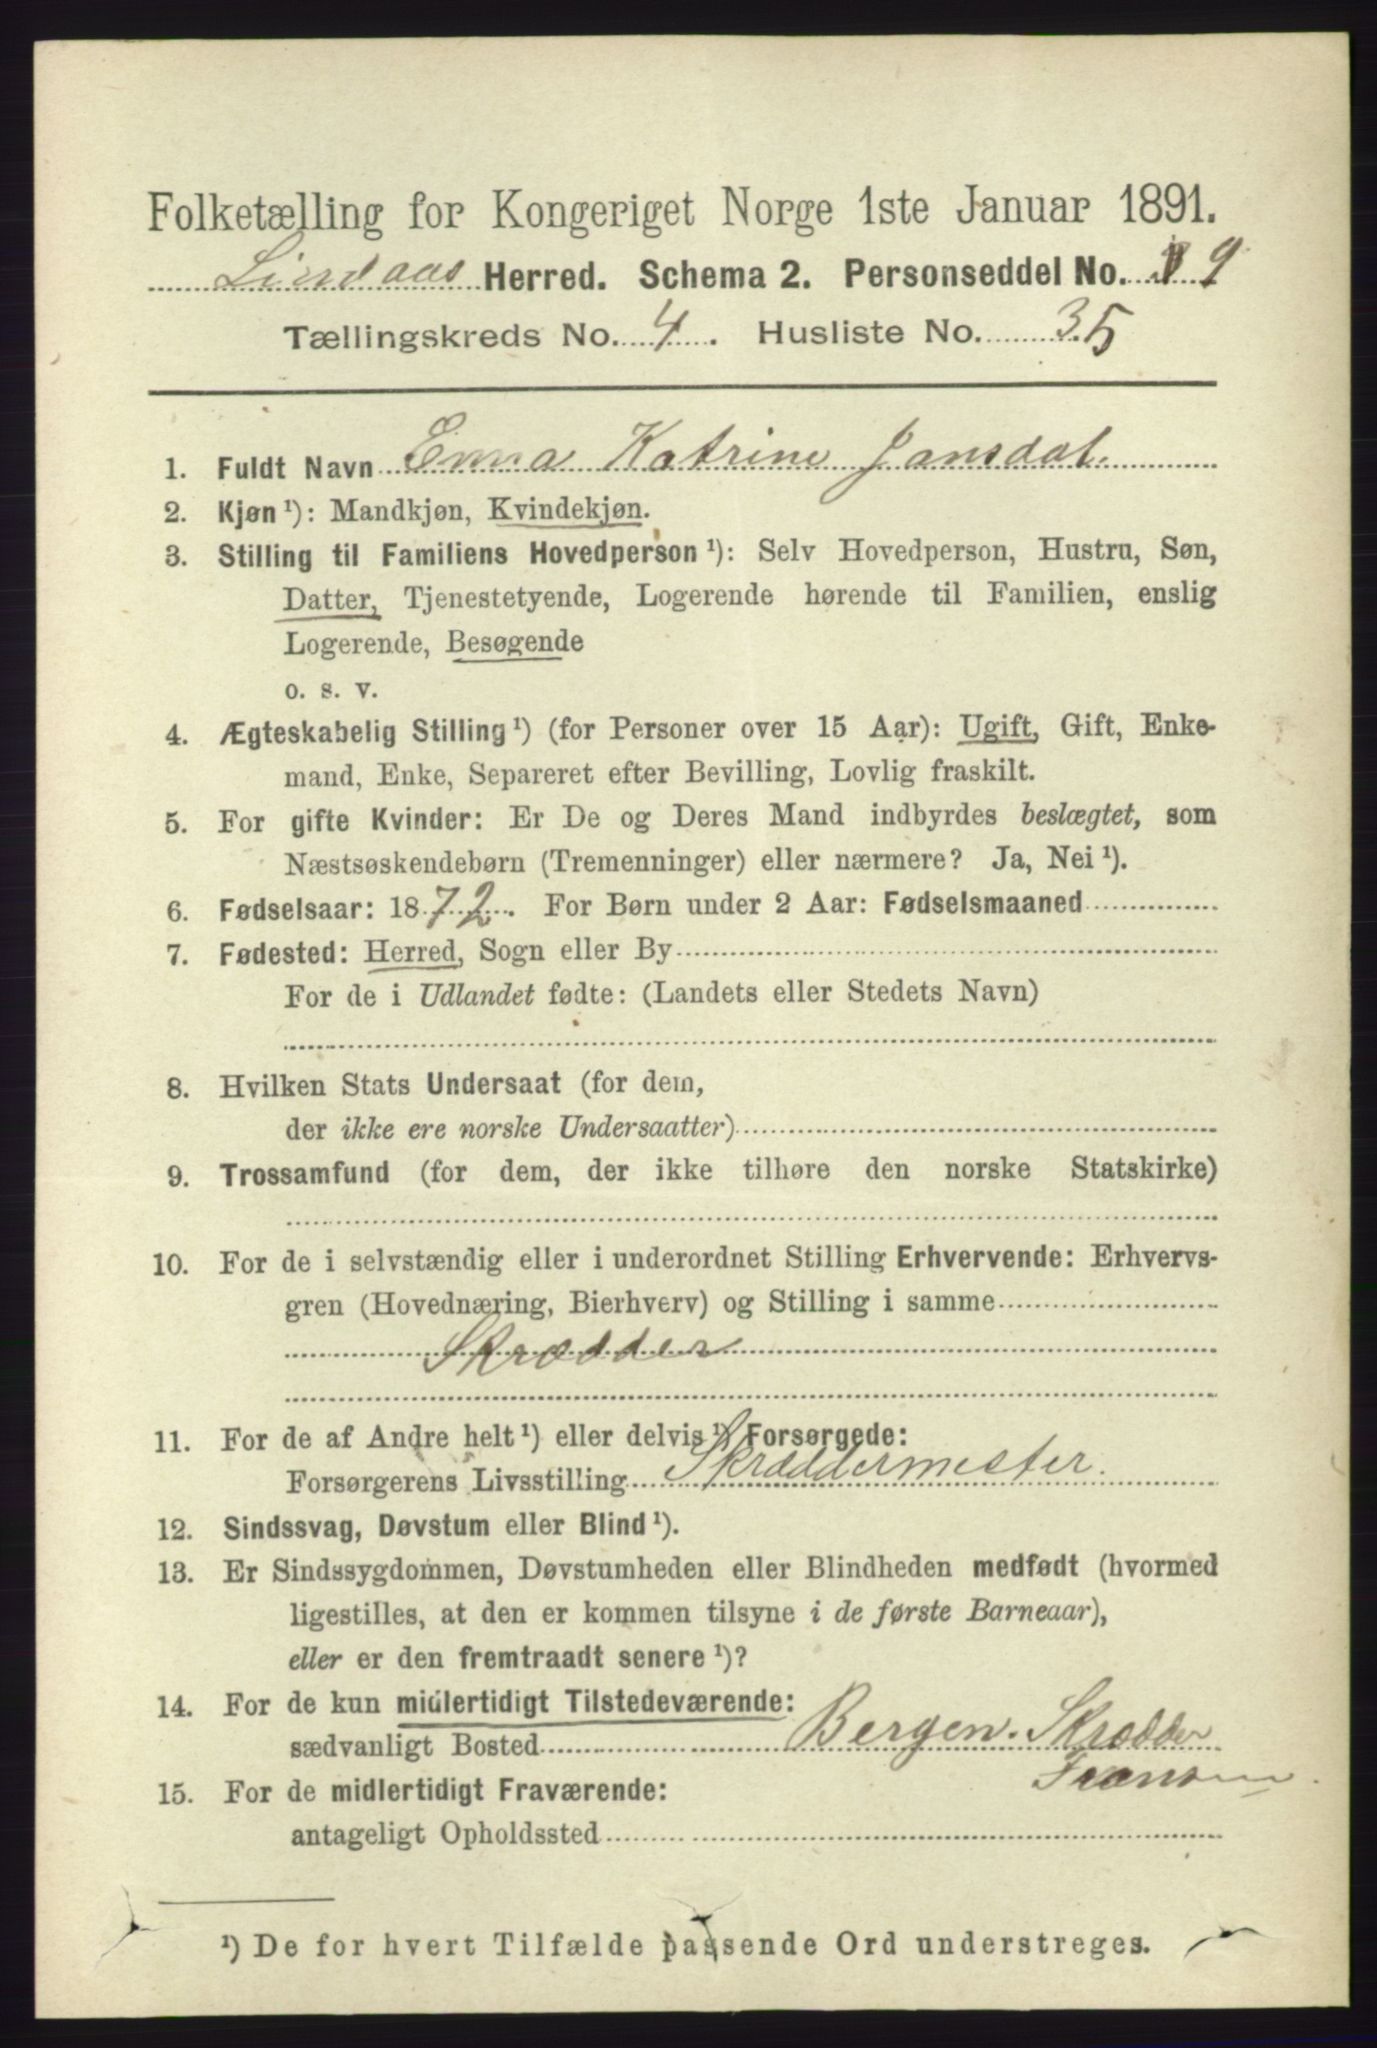 Folketælling for Kongeriget Norge 1ste Januar 1891.
Lindaas Herred. Schema 2. Personseddel No. 9
Tællingskreds No. 4. Husliste No. 35
1. Fuldt Navn Enna Katrine Jansdal.
2. Kjøn ¹): Mandkjøn, Kvindekjøn.
3. Stilling til Familiens Hovedperson ¹): Selv Hovedperson, Hustru, Søn,
Datter, Tjenestetyende, Logerende hørende til Familien, enslig
Logerende, Besøgende
o. s. v.
4. Ægteskabelig Stilling ¹) (for Personer over 15 Aar): Ugift, Gift, Enke-
mand, Enke, Separeret efter Bevilling, Lovlig fraskilt.
5. For gifte Kvinder: Er De og Deres Mand indbyrdes beslægtet, som
Næstsøskendebørn (Tremenninger) eller nærmere? Ja, Nei ¹).
6. Fødselsaar: 1872. For Børn under 2 Aar: Fødselsmaaned
7. Fødested: Herred, Sogn eller By
For de i Udlandet fødte: (Landets eller Stedets Navn)
8. Hvilken Stats Undersaat (for dem,
der ikke ere norske Undersaatter)
9. Trossamfund (for dem, der ikke tilhøre den norske Statskirke)
10. For de i selvstændig eller i underordnet Stilling Erhvervende: Erhvervs-
gren (Hovednæring, Bierhverv) og Stilling i samme
Skrædder
11. For de af Andre helt ¹) eller delvis ¹) Forsørgede:
Forsørgerens Livsstilling Skræddermester.
12. Sindssvag, Døvstum eller Blind ¹).
13. Er Sindssygdommen, Døvstumheden eller Blindheden medfødt (hvormed
ligestilles, at den er kommen tilsyne i de første Barneaar),
eller er den fremtraadt senere ¹)?
14. For de kun midlertidigt Tilstedeværende:
sædvanligt Bosted Bergen. Skrædder
Fransen.
15. For de midlertidigt Fraværende:
antageligt Opholdssted
¹) De for hvert Tilfælde passende Ord understreges.